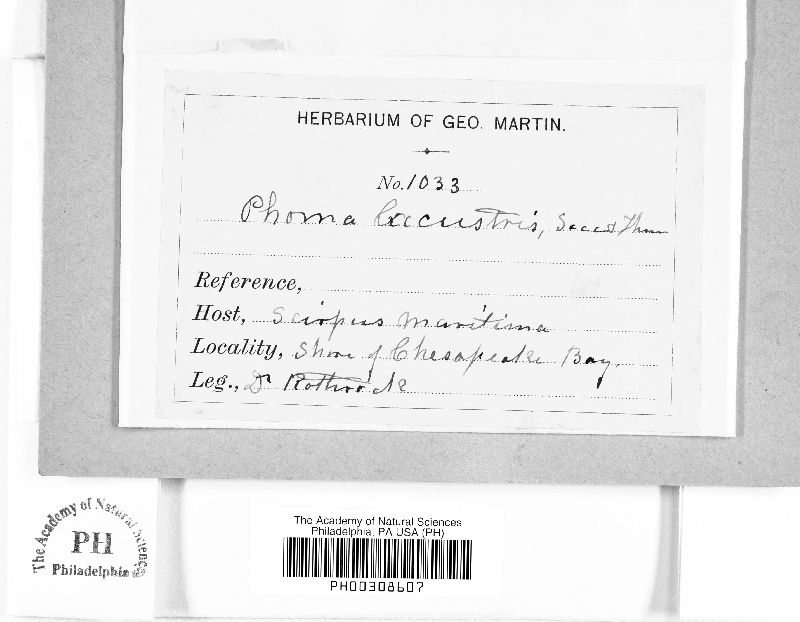 HERBARIUM OF GEO. MARTIN.
No. 1033
Phoma lacustris, Sacc &
Reference,
Host, Scirpus maritima
Locality, Shore of Chesapeake Bay.
Leg., Dr Rothrock
The Academy of Natural Sciences
PH
Philadelphia
The Academy of Natural Sciences
Philadelphia, PA USA (PH)
PH00308607